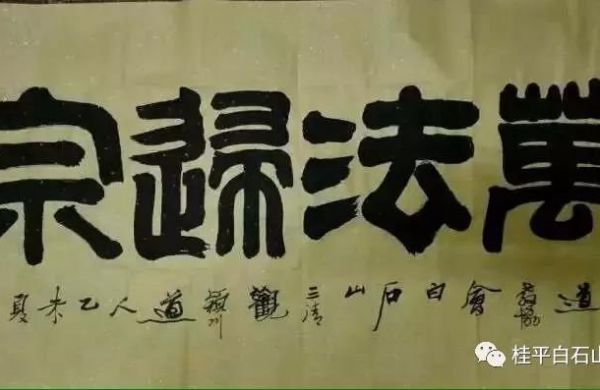 萬法歸宗
道教協會白石山三清觀道人乙未夏
桂平白石山